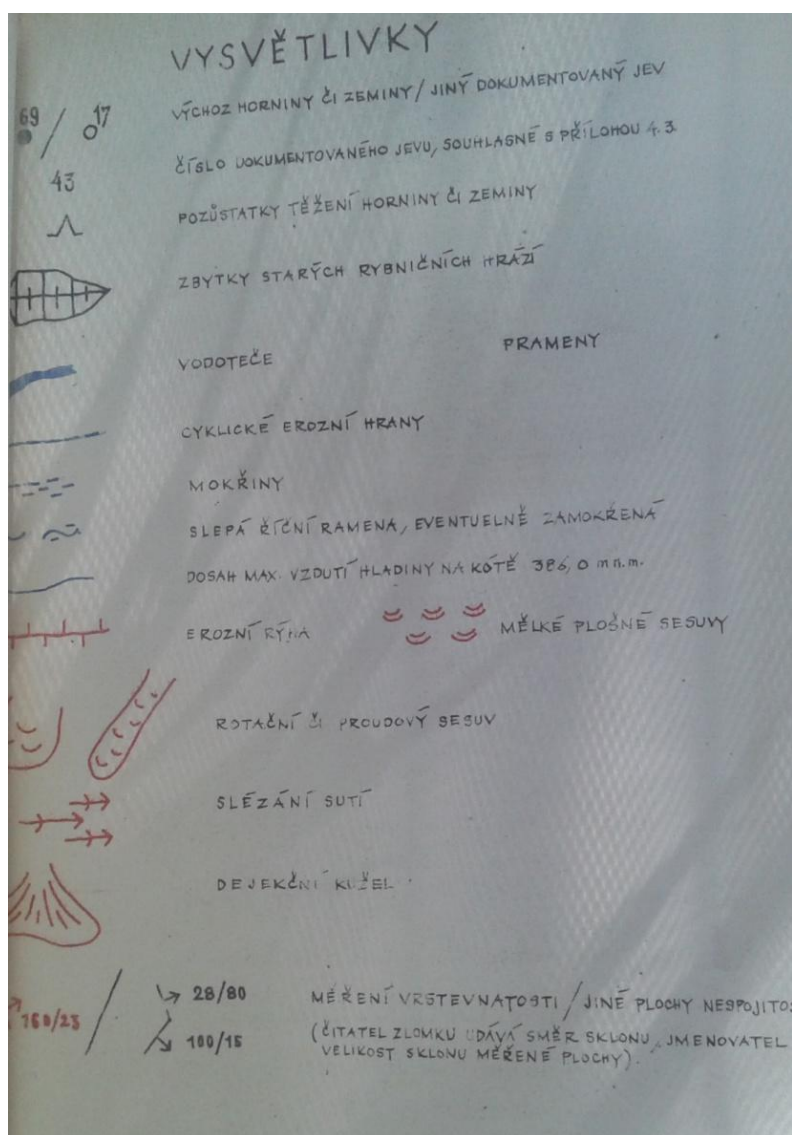 VYSVĚTLIVKY
69 / 17 VÝCHOZ HORNINY ČI ZEMINY / JINÝ DOKUMENTOVANÝ JEV
43 ČÍSLO DOKUMENTOVANÉHO JEVU, SOUHLASNÉ S PŘÍLOHOU 4.3.
POZŮSTATKY TĚŽENÍ HORNINY ČI ZEMINY
ZBYTKY STARÝCH RYBNIČNÍCH HRÁZÍ
VODOTEČE PRAMENY
CYKLICKÉ EROZNÍ HRANY
MOKŘINY
SLEPÁ ŘÍČNÍ RAMENA, EVENTUELNĚ ZAMOKŘENÁ
DOSAH MAX. VZDUTÍ HLADINY NA KÓTĚ 386,0 m n.m.
EROZNÍ RÝHA MĚLKÉ PLOŠNÉ SESUVY
ROTAČNÍ ČI PROUDOVÝ SESUV
SLÉZÁNÍ SUTÍ
DEJEKČNÍ KUŽEL
160/23 / 28/80 MĚŘENÍ VRSTEVNATOSTI / JINÉ PLOCHY NESPOJITOS
100/15 (ČITATEL ZLOMKU UDÁVÁ SMĚR SKLONU, JMENOVATEL
VELIKOST SKLONU MĚŘENÉ PLOCHY).